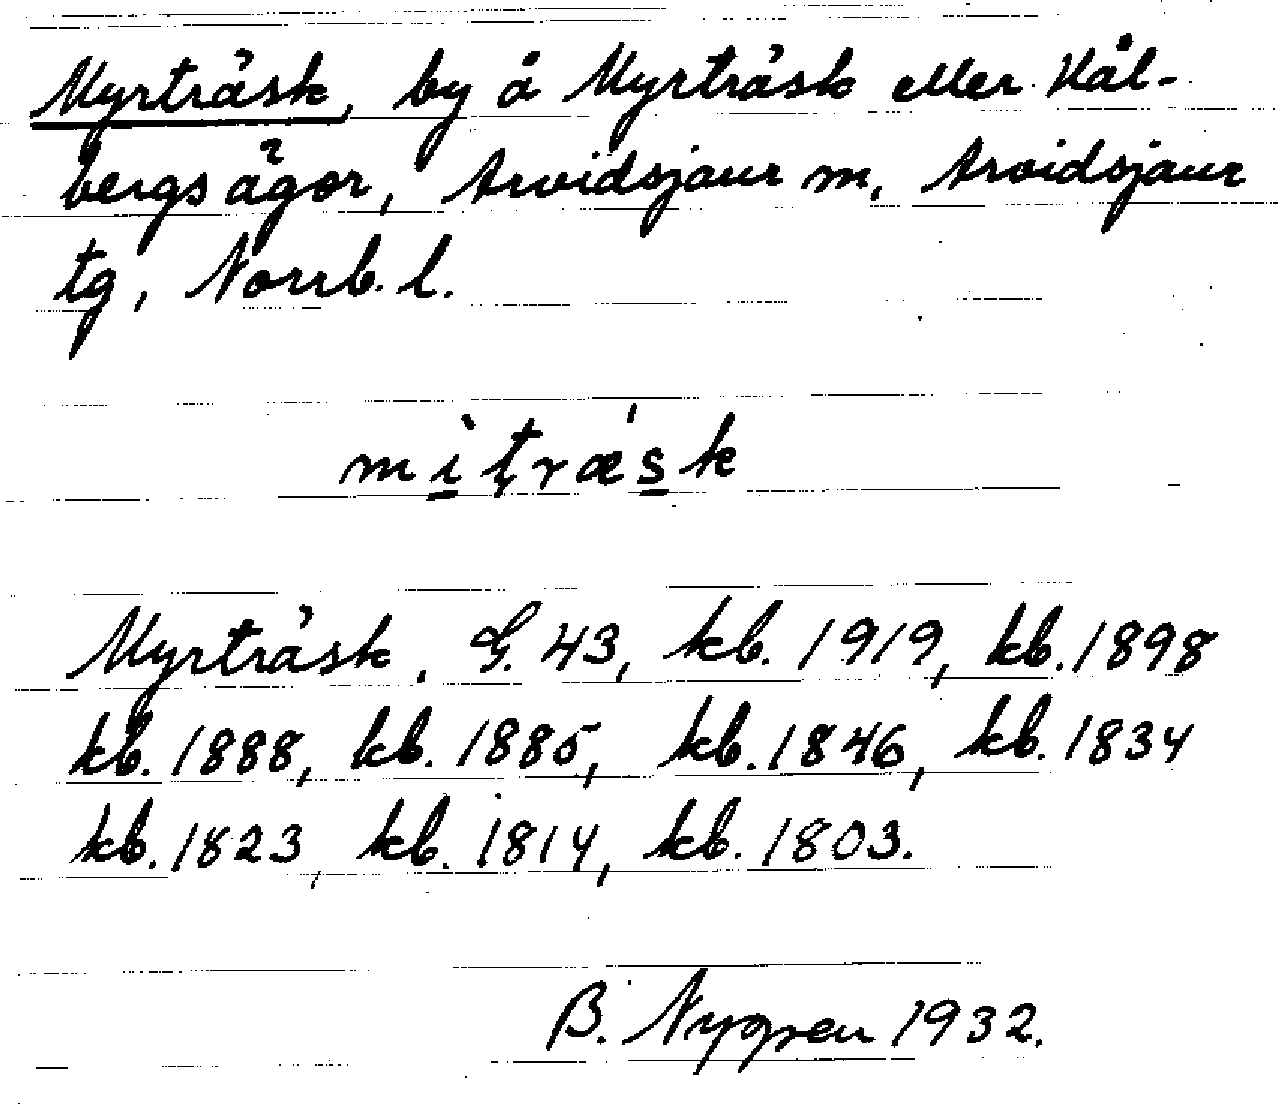 Myrträsk, by å Myrträsk eller Kål-
bergsägor, Arvidsjaur m, Arvidsjaur
tg, Norrb. l.
mìtræ´sk
Myrträsk, G. 43, kb. 1919, kb. 1898
kb. 1888, kb. 1885, kb. 1846, kb. 1834
kb. 1823, kb. 1814, kb. 1803.
B. Nygren 1932.